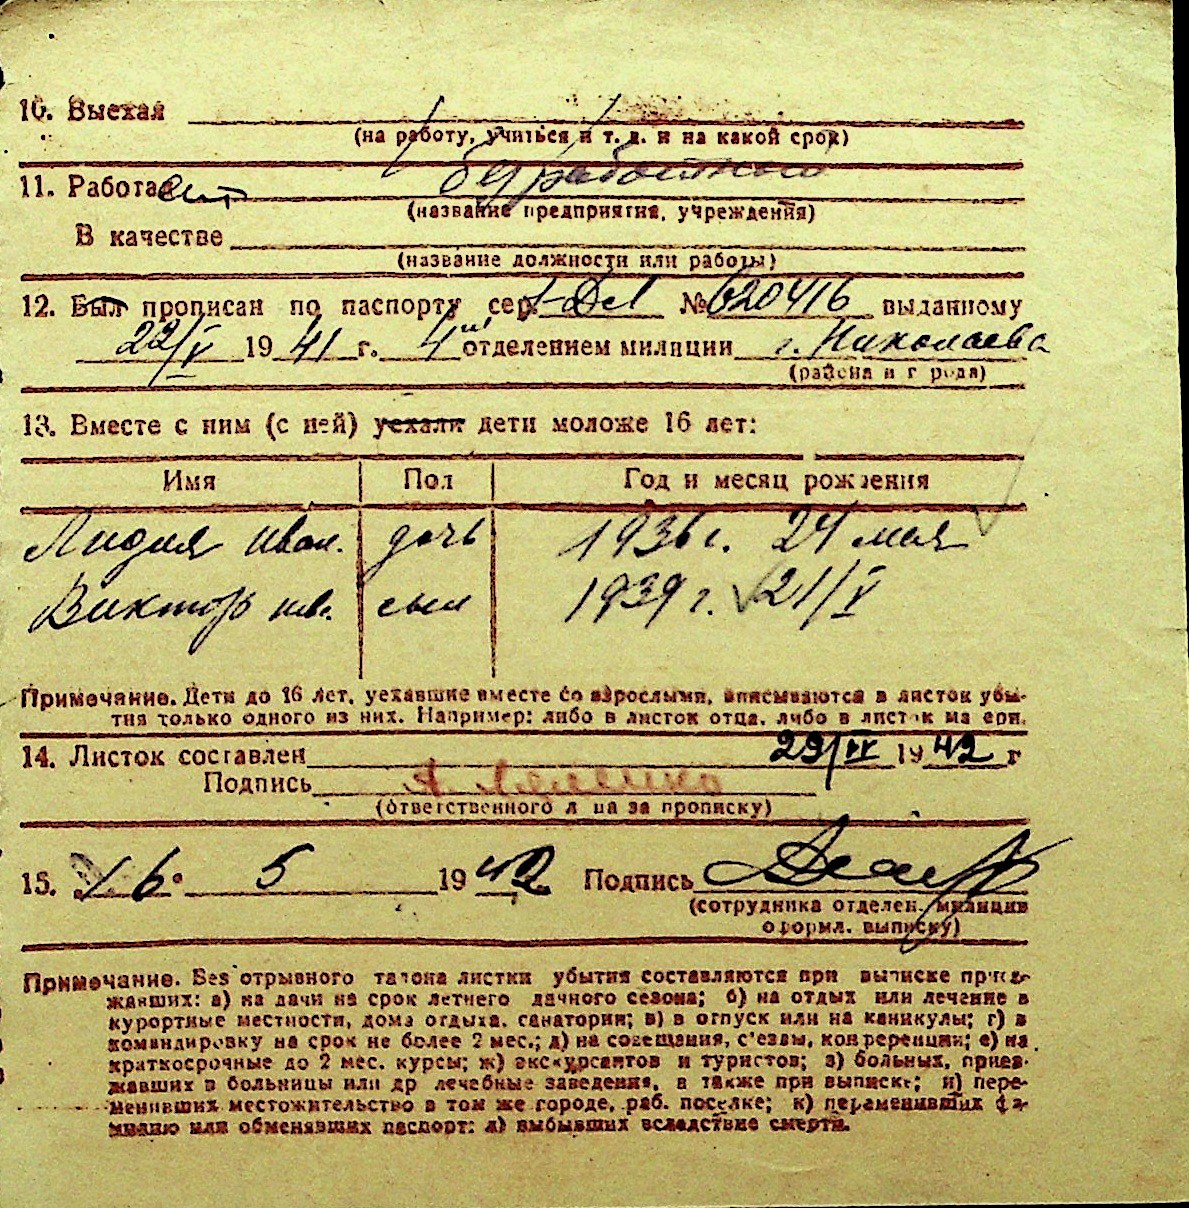 10. Выехал
(на работу, учиться и т. д. и на какой срок)
11. Работает безработный
(название предприятия, учреждения)
В качестве
(название должности или работы)
12. Был прописан по паспорту сер. № 620416 выданному
22/V 1941 г. 4 отделением милиции г. Николаева
(района и города)
13. Вместе с ним (с ней) уехали дети моложе 16 лет:
Имя Пол Год и месяц рождения
Лидия Иван. дочь 1936 г. 24 мая
Виктор ив. сын 1939 г. 21/V
Примечание. Дети до 16 лет, уехавшие вместе со взрослыми, вписываются в листок убы-
тия только одного из них. Например: либо в листок отца, либо в листок матери.
14. Листок составлен 29/IV 1942 г
Подпись
(ответственного лица за прописку)
15. 16 5 1942 Подпись
(сотрудника отделен. милиции
оформл. выписку)
Примечание. Без отрывного талона листки убытия составляются при выписке приез-
жавших: а) на дачи на срок летнего дачного сезона; б) на отдых или лечение в
курортные местности, дома отдыха, санатории; в) в отпуск или на каникулы; г) в
командировку на срок не более 2 мес.; д) на совещания, с'езды, конференции; е) на
краткосрочные до 2 мес. курсы; ж) экскурсантов и туристов; з) больных, приез-
жавших в больницы или др лечебные заведения, а также при выписке; и) пере-
менивших местожительство в том же городе, раб. поселке; к) переменивших фа-
милию или обменявших паспорт; л) выбывших вследствие смерти.